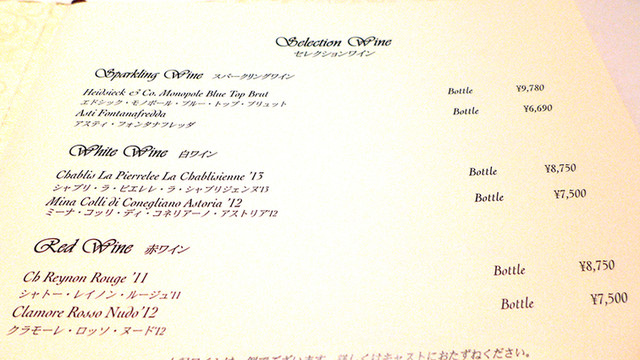 Selection Wine
セレクションワイン
Sparkling Wine スパークリングワイン
Heidsieck & Co. Monopole Blue Top Brut Bottle ¥9,780
エドシック・モノポール・ブルー・トップ・ブリュット
Asti Fontanafredda Bottle ¥6,690
アスティ・フォンタナフレッダ
White Wine 白ワイン
Chablis La Pierrelee La Chablisienne '13 Bottle ¥8,750
シャブリ・ラ・ピエレレ・ラ・シャブリジェンヌ'13
Mina Colli di Conegliano Astoria '12 Bottle ¥7,500
ミーナ・コッリ・ディ・コネリアーノ・アストリア'12
Red Wine 赤ワイン
Ch Reynon Rouge '11 Bottle ¥8,750
シャトー・レイノン・ルージュ'11
Clamore Rosso Nudo '12 Bottle ¥7,500
クラモーレ・ロッソ・ヌード'12
ございます。詳しくはキャストにおたずねください。